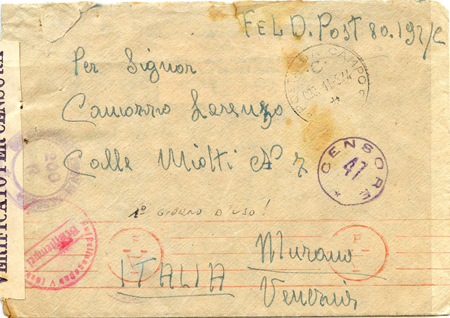 FELD. Post 80.192/C
Per Signor
Camozzo Lorenzo
Calle Miotti N 7
CENSORE
47
200
R
VERIFICATO PER CENSURA
1° GIORNO D'USO!
Murano
ITALIA
Venezia